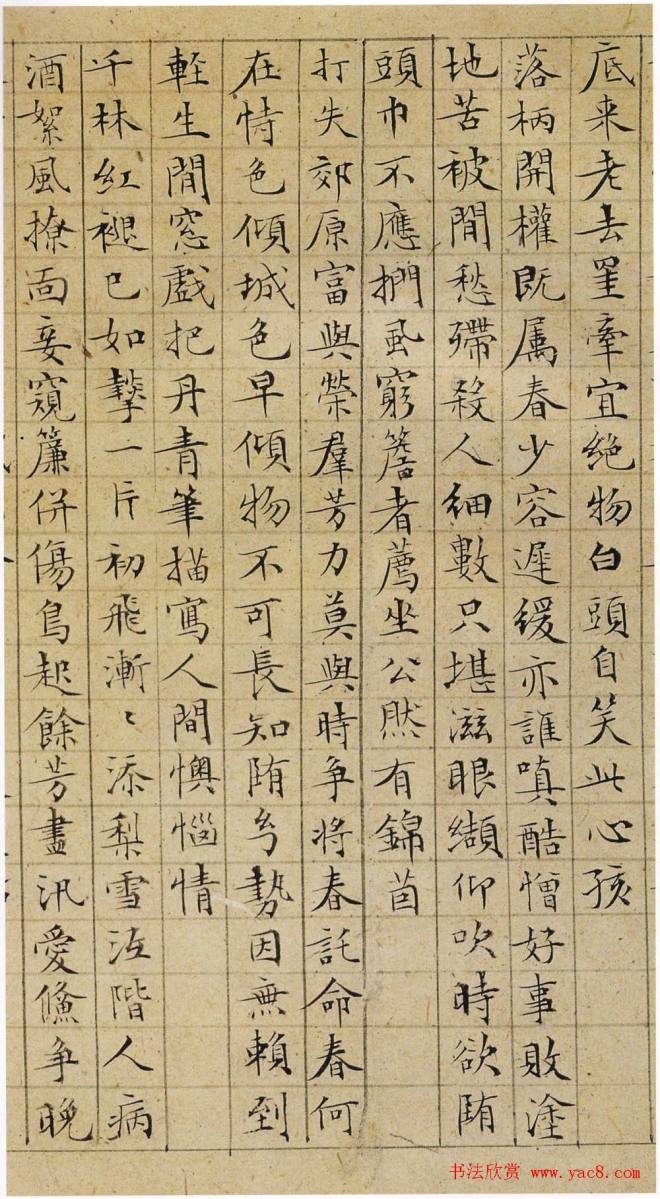 底来老去罣牽宜絶物白頭自笑此心孩
落柄開權既属春少容遲緩亦誰嗔酷憎好事敗塗
地苦被閒愁殢殺人細數只堪滋眼纈仰吹時欲陏
頭巾不應捫虱窮簷者薦坐公然有錦茵
打失郊原富與榮羣芳力莫與時争將春託命春何
在恃色傾城色早傾物不可長知陏幻勢因無賴到
輕生閒窓戲把丹青筆描寫人間懊惱情
千林紅褪已如撏一片初飛漸〻添梨雪沍階人病
酒絮風撩面妾窺簾併傷鳥起餘芳盡汎愛鯈争晚
书法欣赏 www.yac8.com